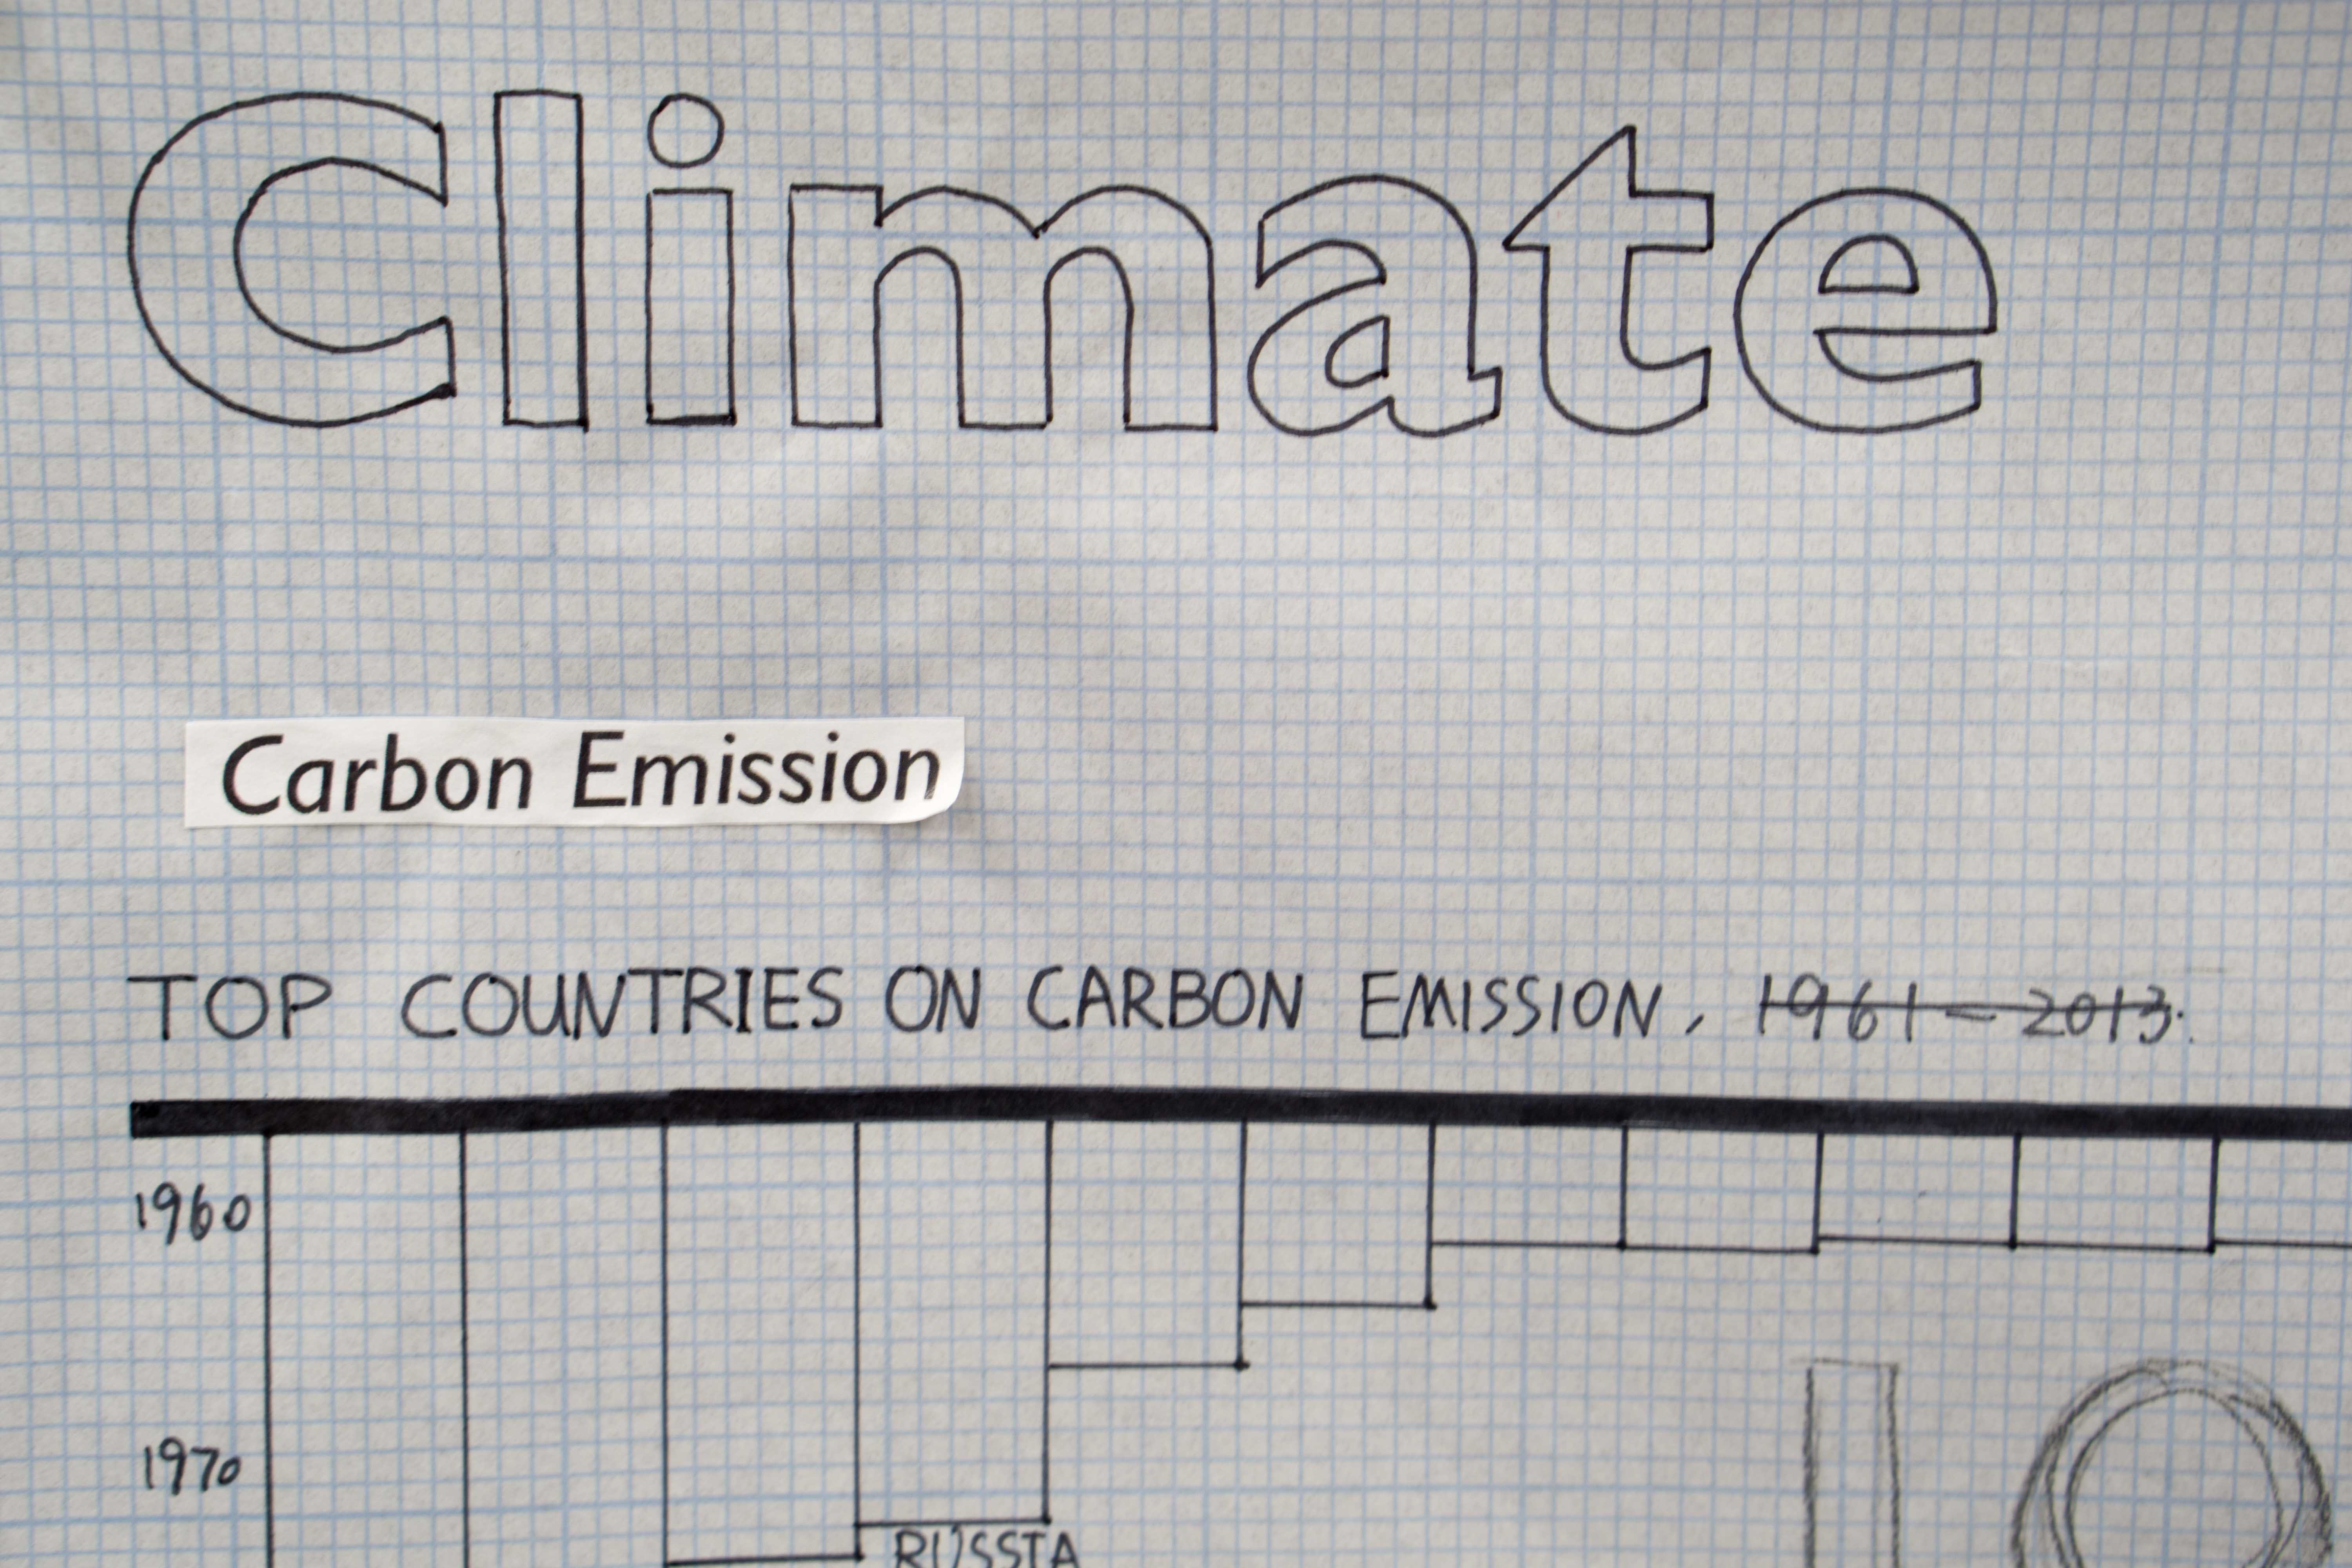 Climate
Carbon Emission
TOP COUNTRIES ON CARBON EMISSION, 1961 - 2013.
1960
1970
RUSSIA
10